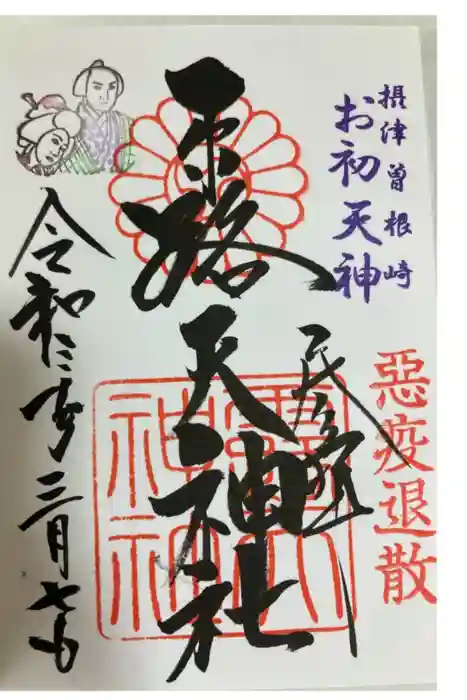 摂津曽根崎
お初天神
惡疫退散
露天神社
露天
神社
令和二年三月七日